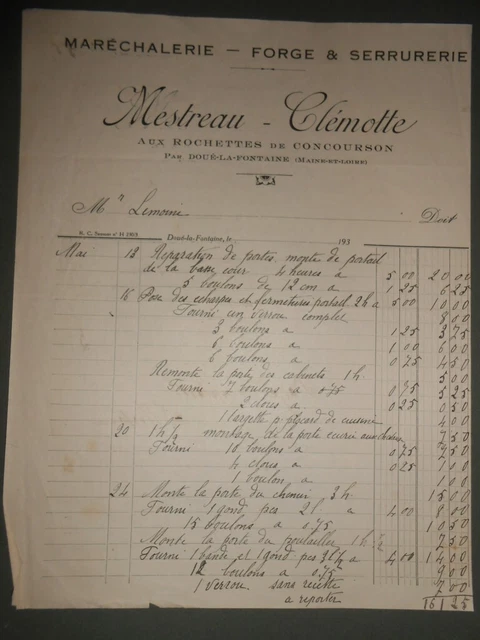 MARÉCHALERIE — FORGE & SERRURERIE
Mestreau - Clémotte
AUX ROCHETTES DE CONCOURSON
PAR DOUÉ-LA-FONTAINE (MAINE-ET-LOIRE)
Mr Lemoine Doit
R. C. Saumur nº H 2803 Doué-la-Fontaine, le 193
Mai 13 Réparation de portes, monte de portail
de la basse cour 4 heures a 5 00 20 00
5 boulons de 12 cm a 1 25 6 25
16 Pose des echarpes et fermetures portail 2h a 5 00 10 00
Fourni un verrou complet 8 00
3 boulons a 1 25 3 75
6 boulons a 1 00 6 00
6 boulons a 0 75 4 50
Remonte la porte des cabinets 1h 5 00
Fourni 7 boulons a 0.75 0 75 5 25
2 clous a 0 25 0 50
1 targette p. placard de cuisine 4 00
20 1h ½ montage de la porte ecurie aux 7 50
Fourni 10 boulons a 0 75 7 50
4 clous a 0 25 1 00
1 boulon a 1 00
24 Monte la porte du chenil 3h 15 00
Fourni 1 gond pes 2k a 4 00 8 00
15 boulons a 0.75 10 50
Monte la porte du poulailler 1h ½ 7 50
Fourni 1 bande et 1 gond pes 3k ½ a 4 00 14 00
12 boulons a 0.75 9 00
1 verrou sans 7 00
a reporter 161 25